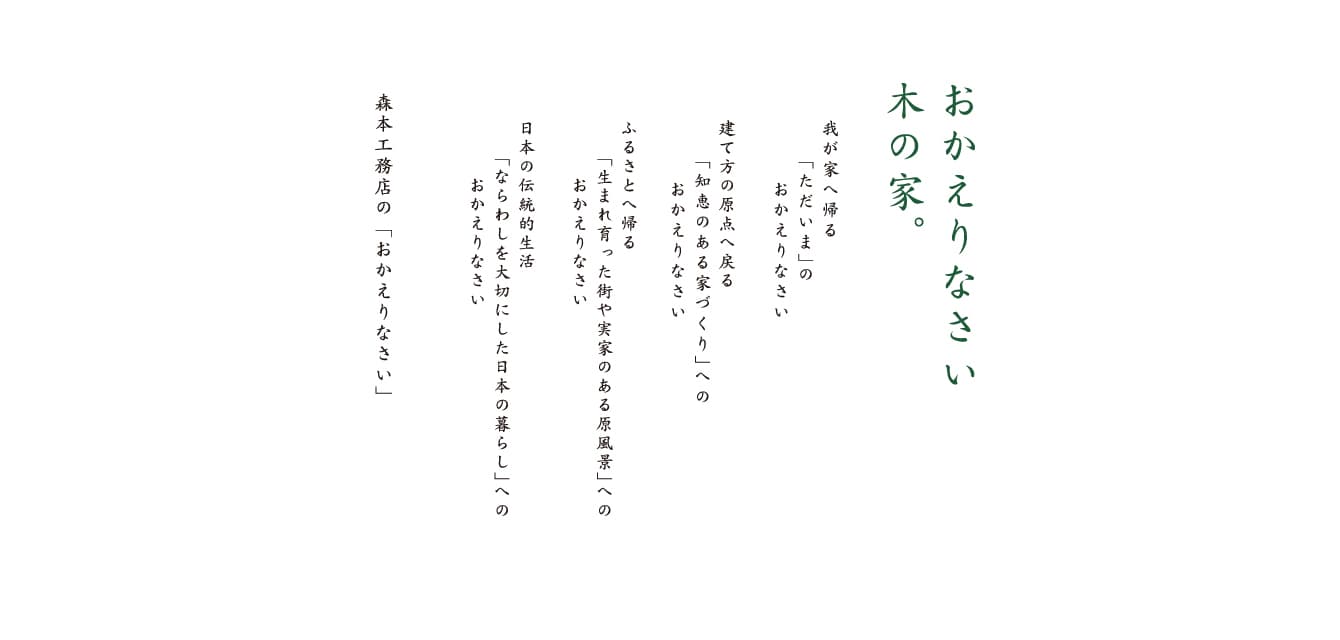 おかえりなさい
木の家。
我が家へ帰る
「ただいま」の
おかえりなさい
建て方の原点へ戻る
「知恵のある家づくり」への
おかえりなさい
ふるさとへ帰る
「生まれ育った街や実家のある原風景」への
おかえりなさい
日本の伝統的生活
「ならわしを大切にした日本の暮らし」への
おかえりなさい
森本工務店の「おかえりなさい」